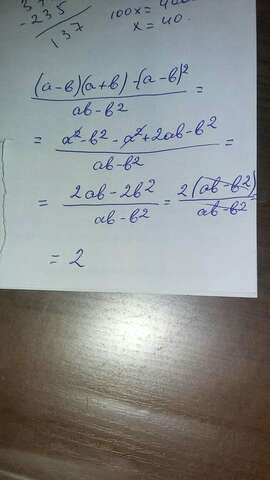 - 235
137
100x = 400
x = 40.
(a-b)(a+b) - (a-b)² / ab-b² =
= a²-b²-a²+2ab-b² / ab-b² =
= 2ab-2b² / ab-b² = 2(ab-b²) / ab-b² =
= 2